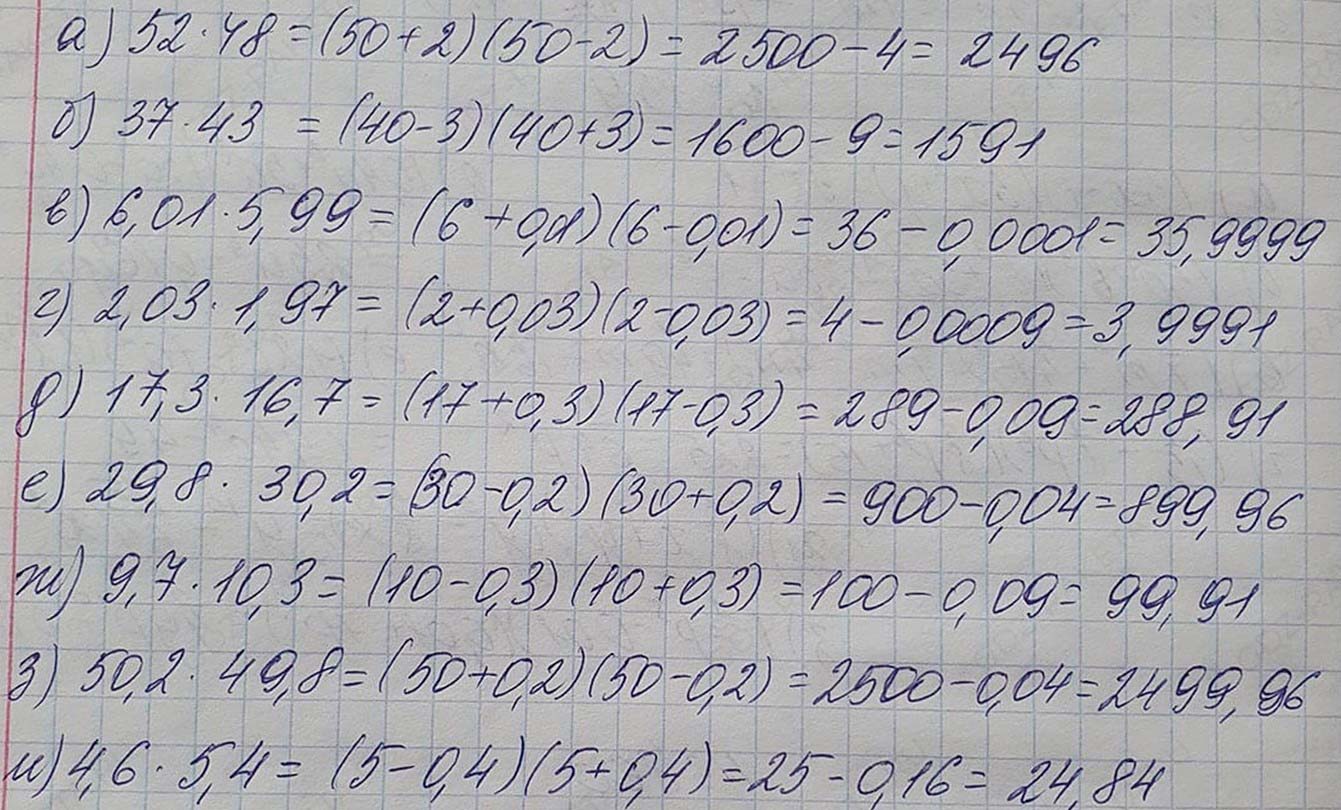 а) 52·48=(50+2)(50-2)=2500-4=2496
б) 37·43 =(40-3)(40+3)=1600-9=1591
в) 6,01·5,99=(6+0,01)(6-0,01)=36-0,0001=35,9999
г) 2,03·1,97=(2+0,03)(2-0,03)=4-0,0009=3,9991
д) 17,3·16,7=(17+0,3)(17-0,3)=289-0,09=288,91
е) 29,8·30,2=(30-0,2)(30+0,2)=900-0,04=899,96
ж) 9,7·10,3=(10-0,3)(10+0,3)=100-0,09=99,91
з) 50,2·49,8=(50+0,2)(50-0,2)=2500-0,04=2499,96
и) 4,6·5,4=(5-0,4)(5+0,4)=25-0,16=24,84